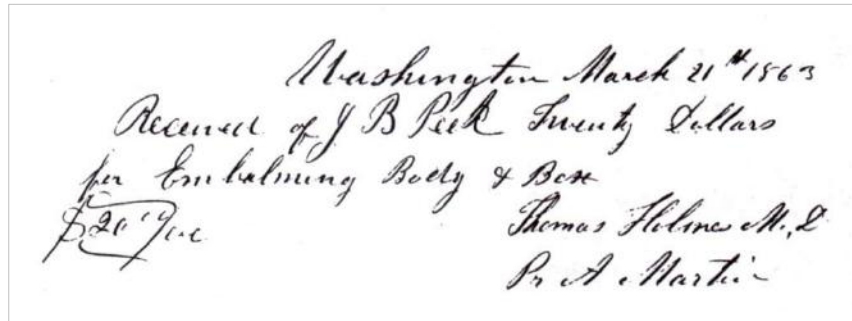 Washington March 21st 1863
Received of J B Peek Twenty Dollars
for Embalming Body & Box
$20 Thomas Holmes M.D
Pr A Martin